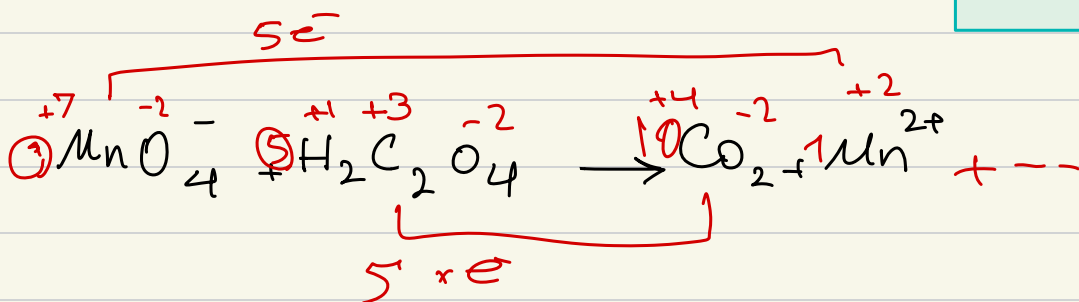 5e⁻
+7 -2 +1 +3 -2 +4 -2 +2
MnO₄⁻ + 5H₂C₂O₄ → 10CO₂ + 1Mn²⁺ + ---
5 × e⁻